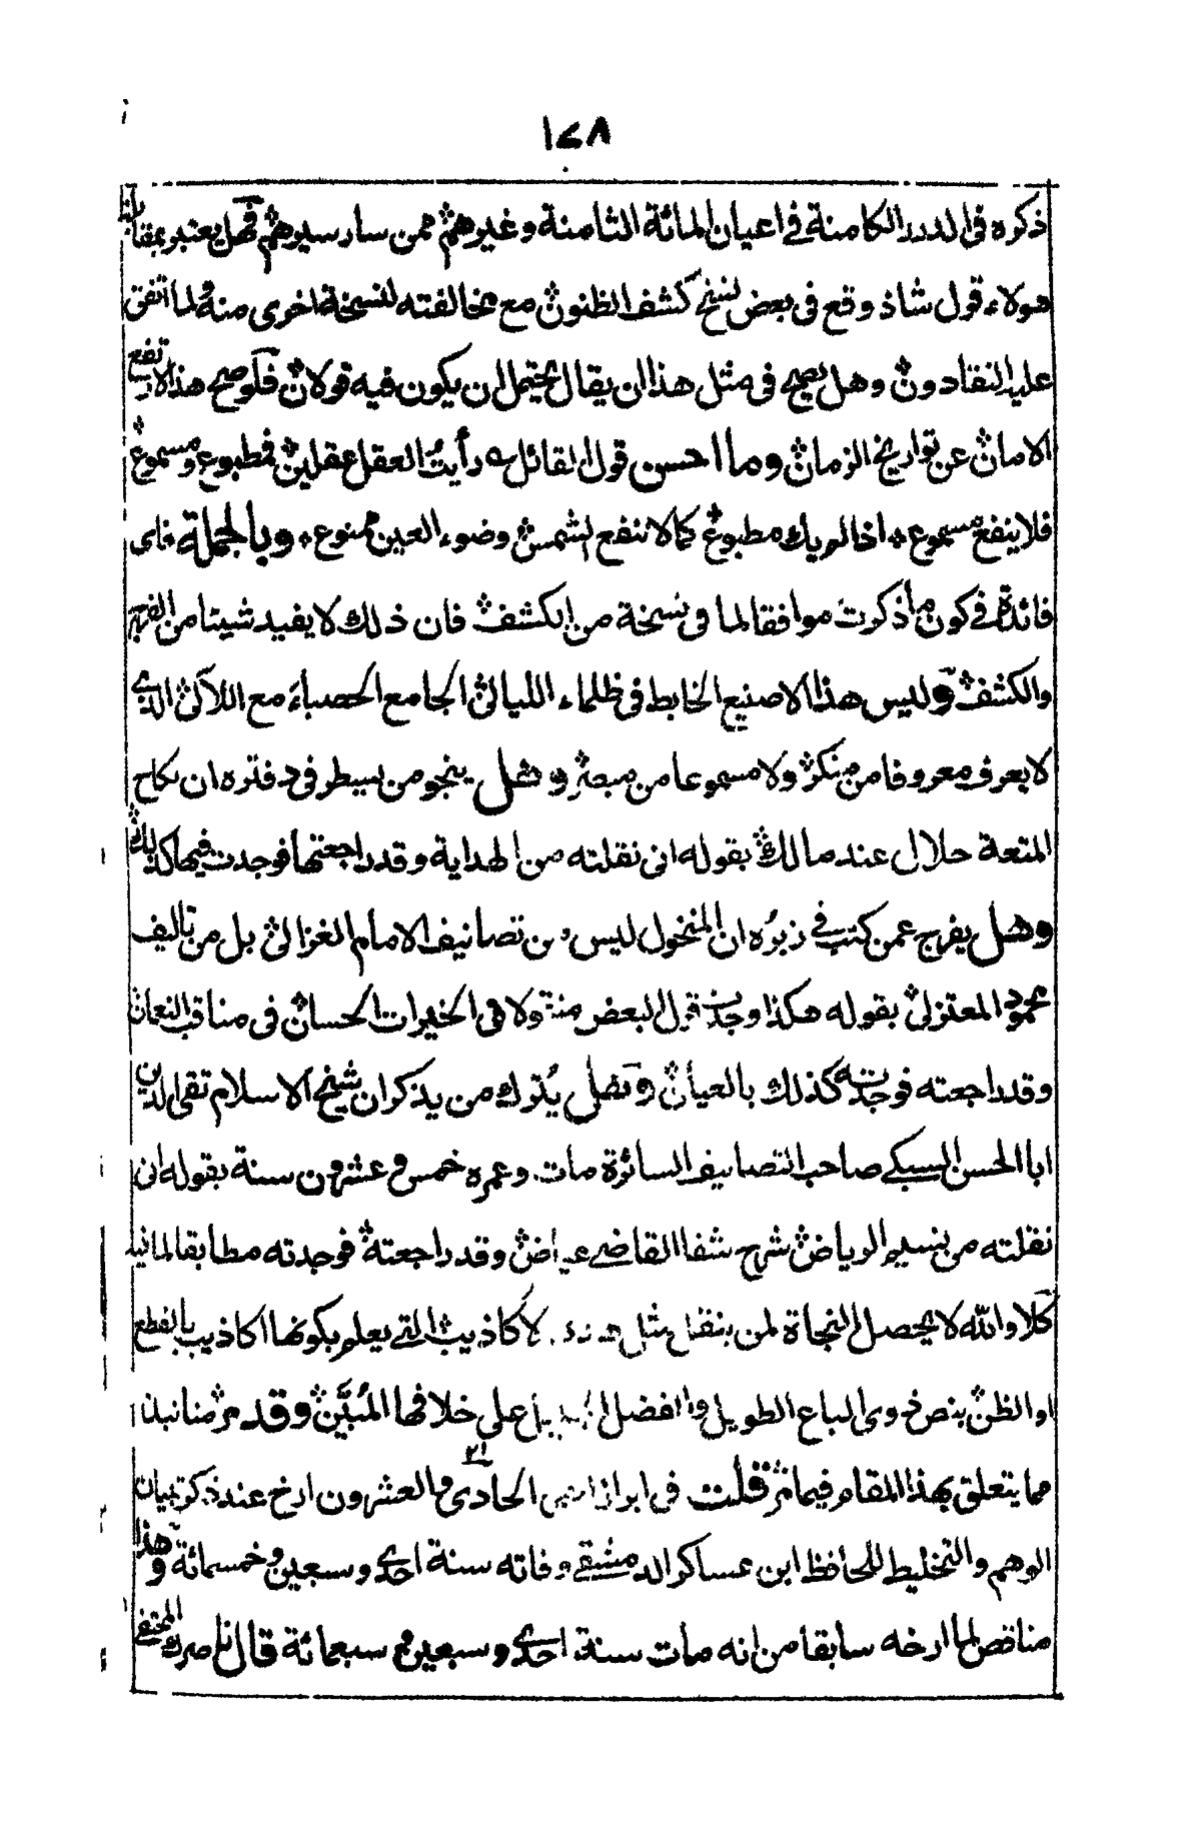 ١٧٨
ذكره فى الدرر الكامنة فى اعيان المائة الثامنة وغيرهم ممن سار سيرهم فهل يعتبر بمقابلة
هولاء قول شاذ وقع فى بعض نسخ كشف الظنون مع مخالفته لنسخة اخرى منه ولما اتفق
عليه النقادون وهل يصح فى مثل هذا ان يقال يحتمل ان يكون فيه قولان فلو صح هذا لارتفع
الامان عن تواريخ الزمان وما احسن قول القائل رأيت العقل عقلين فمطبوع ومسموع
فلا ينفع مسموع اذا لم يك مطبوع كما لا تنفع الشمس وضوء العين ممنوع وبالجملة فاى
فائدة فى كون ما ذكرت موافقا لما فى نسخة من الكشف فان ذلك لا يفيد شيئا من
والكشف وليس هذا الا صنيع الخابط فى ظلماء الليالى الجامع الحصباء مع اللآلى الذى
لا يعرف معروفا من منكر ولا مسموعا من مبصر وهل ينجو من يسطر فى دفتره ان نكاح
المتعة حلال عند مالك بقوله انى نقلته من الهداية وقد راجعتها فوجدت فيها كذلك
وهل يفرج عمن كتب فى زبره ان المنخول ليس من تصانيف الامام الغزالى بل من تاليف
محمود المعتزلى بقوله هكذا وجدت فى الخيرات الحسان فى مناقب النعمان
وقد راجعته فوجدته كذلك بالعيان وهل يترك من يذكر ان شيخ الاسلام تقى الدين
ابا الحسن السبكى صاحب التصانيف السائرة مات وعمره خمس وعشرون سنة بقوله انى
نقلته من نسيم الرياض شرح شفا القاضى عياض وقد راجعته فوجدته مطابقا لما فيه
كلا والله لا يحصل النجاة لمن ينقل مثل هذه الاكاذيب التى يعلم بكونها اكاذيب بالقطع
او الظن بنص ذوى الباع الطويل والفضل على خلافها المبين وقد مر منا نبذا
مما يتعلق بهذا المقام فيما مر قلت فى ابراز الحادى والعشرون ارخ عند ذكر تبيان
٢١
الوهم والتخليط للحافظ ابن عساكر الدمشقى وفاته سنة احدى وسبعين وخمسمائة وهذا
مناقض لما ارخه سابقا من انه مات سنة احدى وسبعين وسبعمائة قال ناصرك المختفى